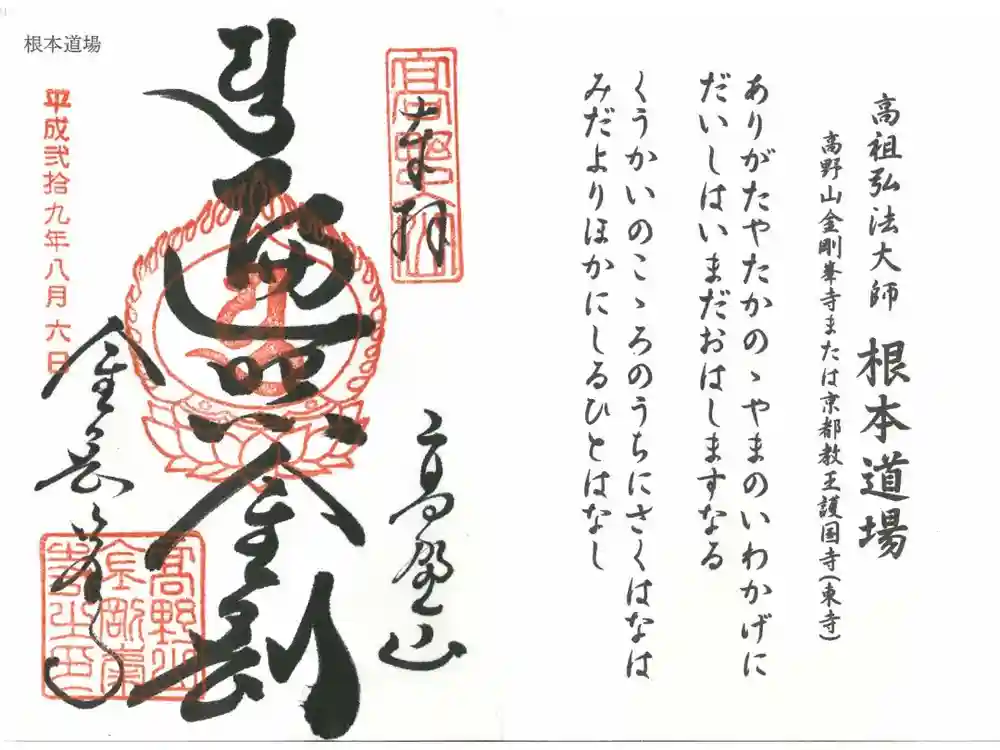 高祖弘法大師 根本道場
高野山金剛峯寺または京都教王護国寺(東寺)
ありがたやたかのゝやまのいわかげに
だいしはいまだおはしますなる
くうかいのこゝろのうちにさくはなは
みだよりほかにしるひとはなし
根本道場
奉拝
高野山
遍照金剛
平成弐拾九年八月六日
金剛峯寺